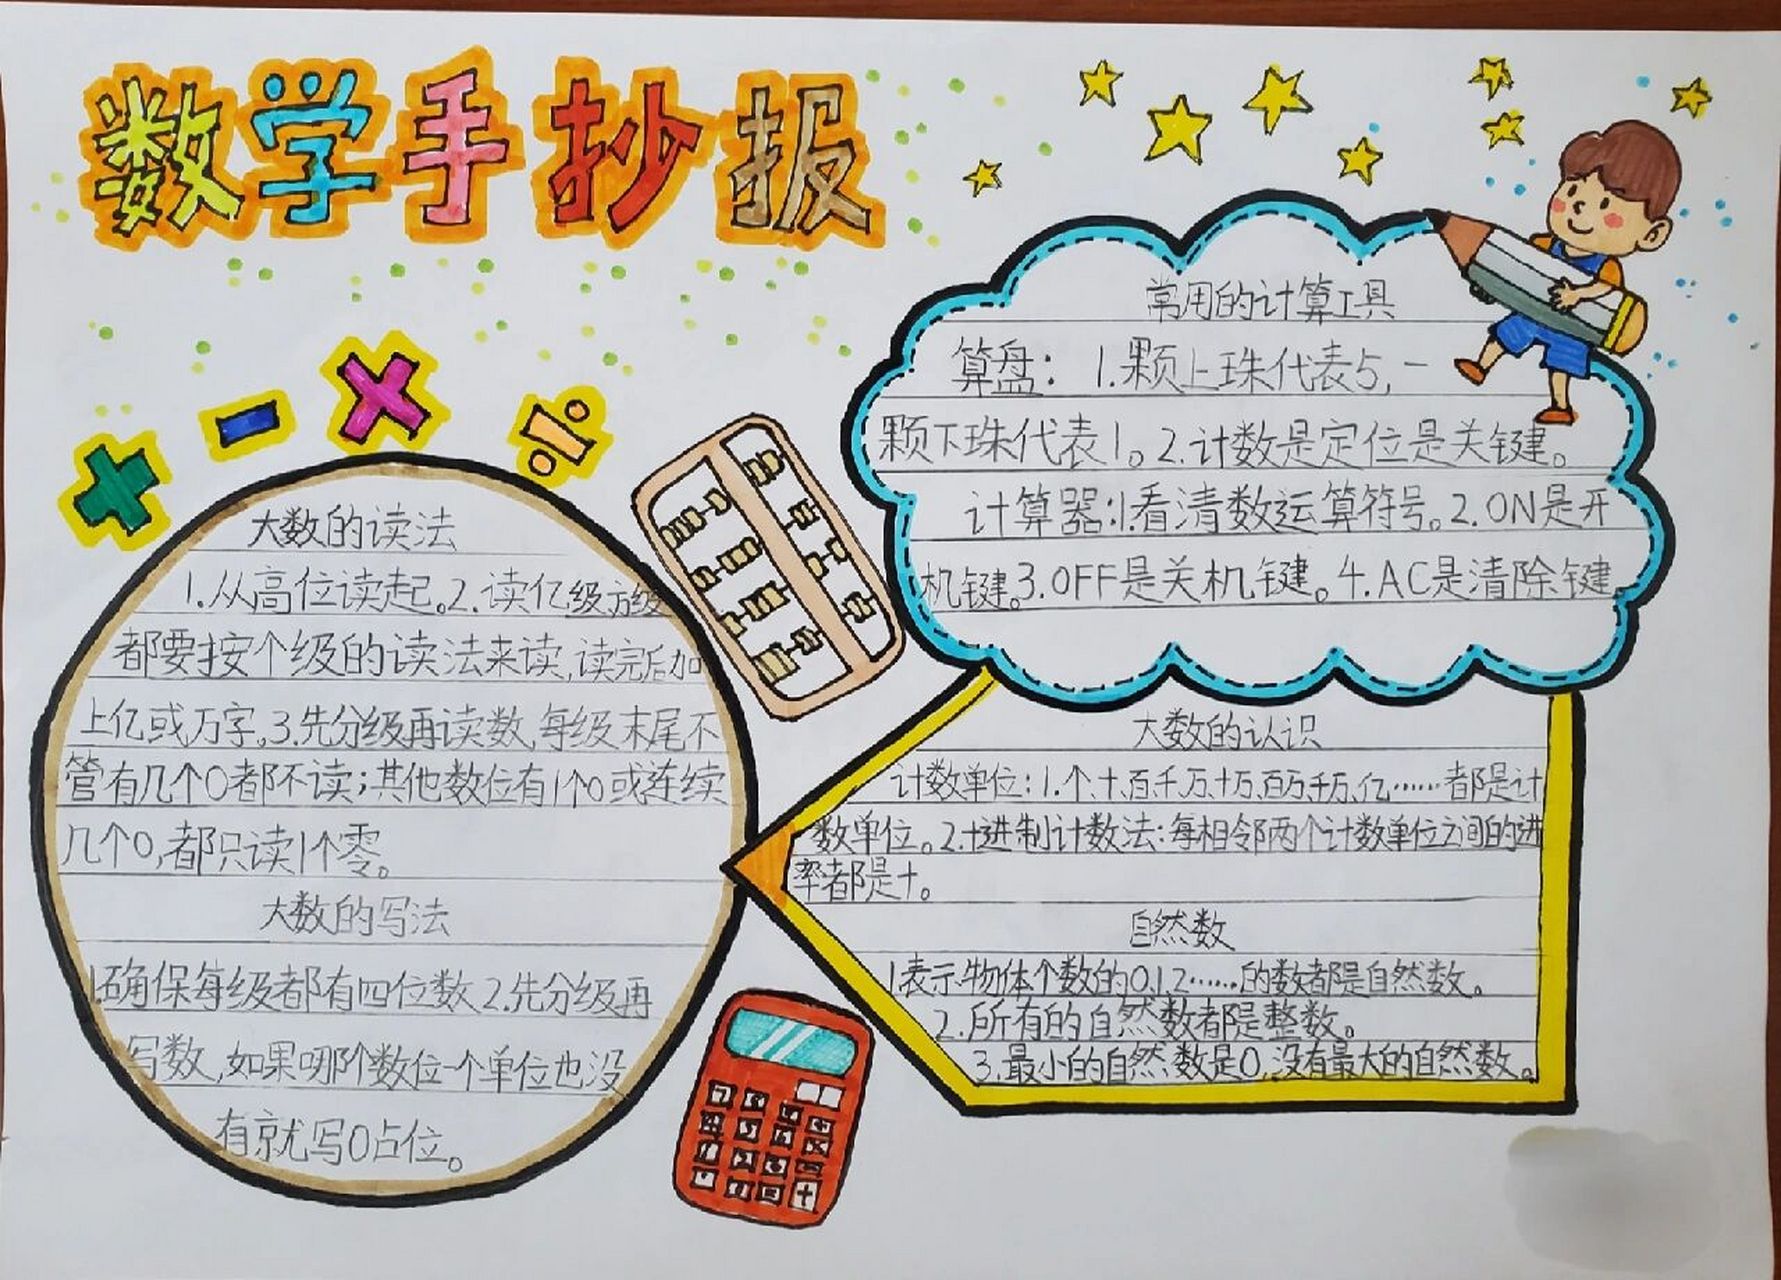 数学手抄报
常用的计算工具
算盘：1.颗上珠代表5,一
颗下珠代表1。2.计数是定位是关键。
计算器:1.看清数运算符号。2.ON是开
机键。3.OFF是关机键。4.AC是清除键。
大数的读法
1.从高位读起。2.读亿级万级
都要按个级的读法来读,读完后加
上亿或万字。3.先分级再读数,每级末尾不
管有几个0都不读;其他数位有1个0或连续
几个0,都只读1个零。
大数的写法
1.确保每级都有四位数2.先分级再
写数,如果哪个数位一个单位也没
有就写0占位。
大数的认识
计数单位:1.个、十、百、千、万、十万、百万、千万、亿……都是计
数单位。2.十进制计数法:每相邻两个计数单位之间的进
率都是十。
自然数
1.表示物体个数的0.1.2……的数都是自然数。
2.所有的自然数都是整数。
3.最小的自然数是0,没有最大的自然数。